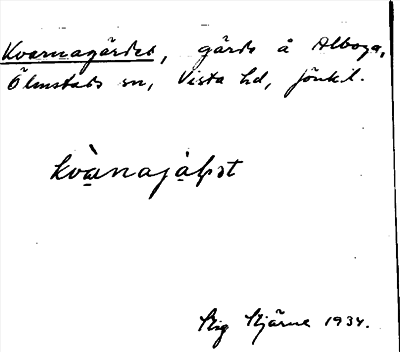 Kvarnagärdet, gärde å Alboga,
Ölmstads sn, Vista hd, Jönk.l.
kvànajaþət
Stig Stjärne 1934.